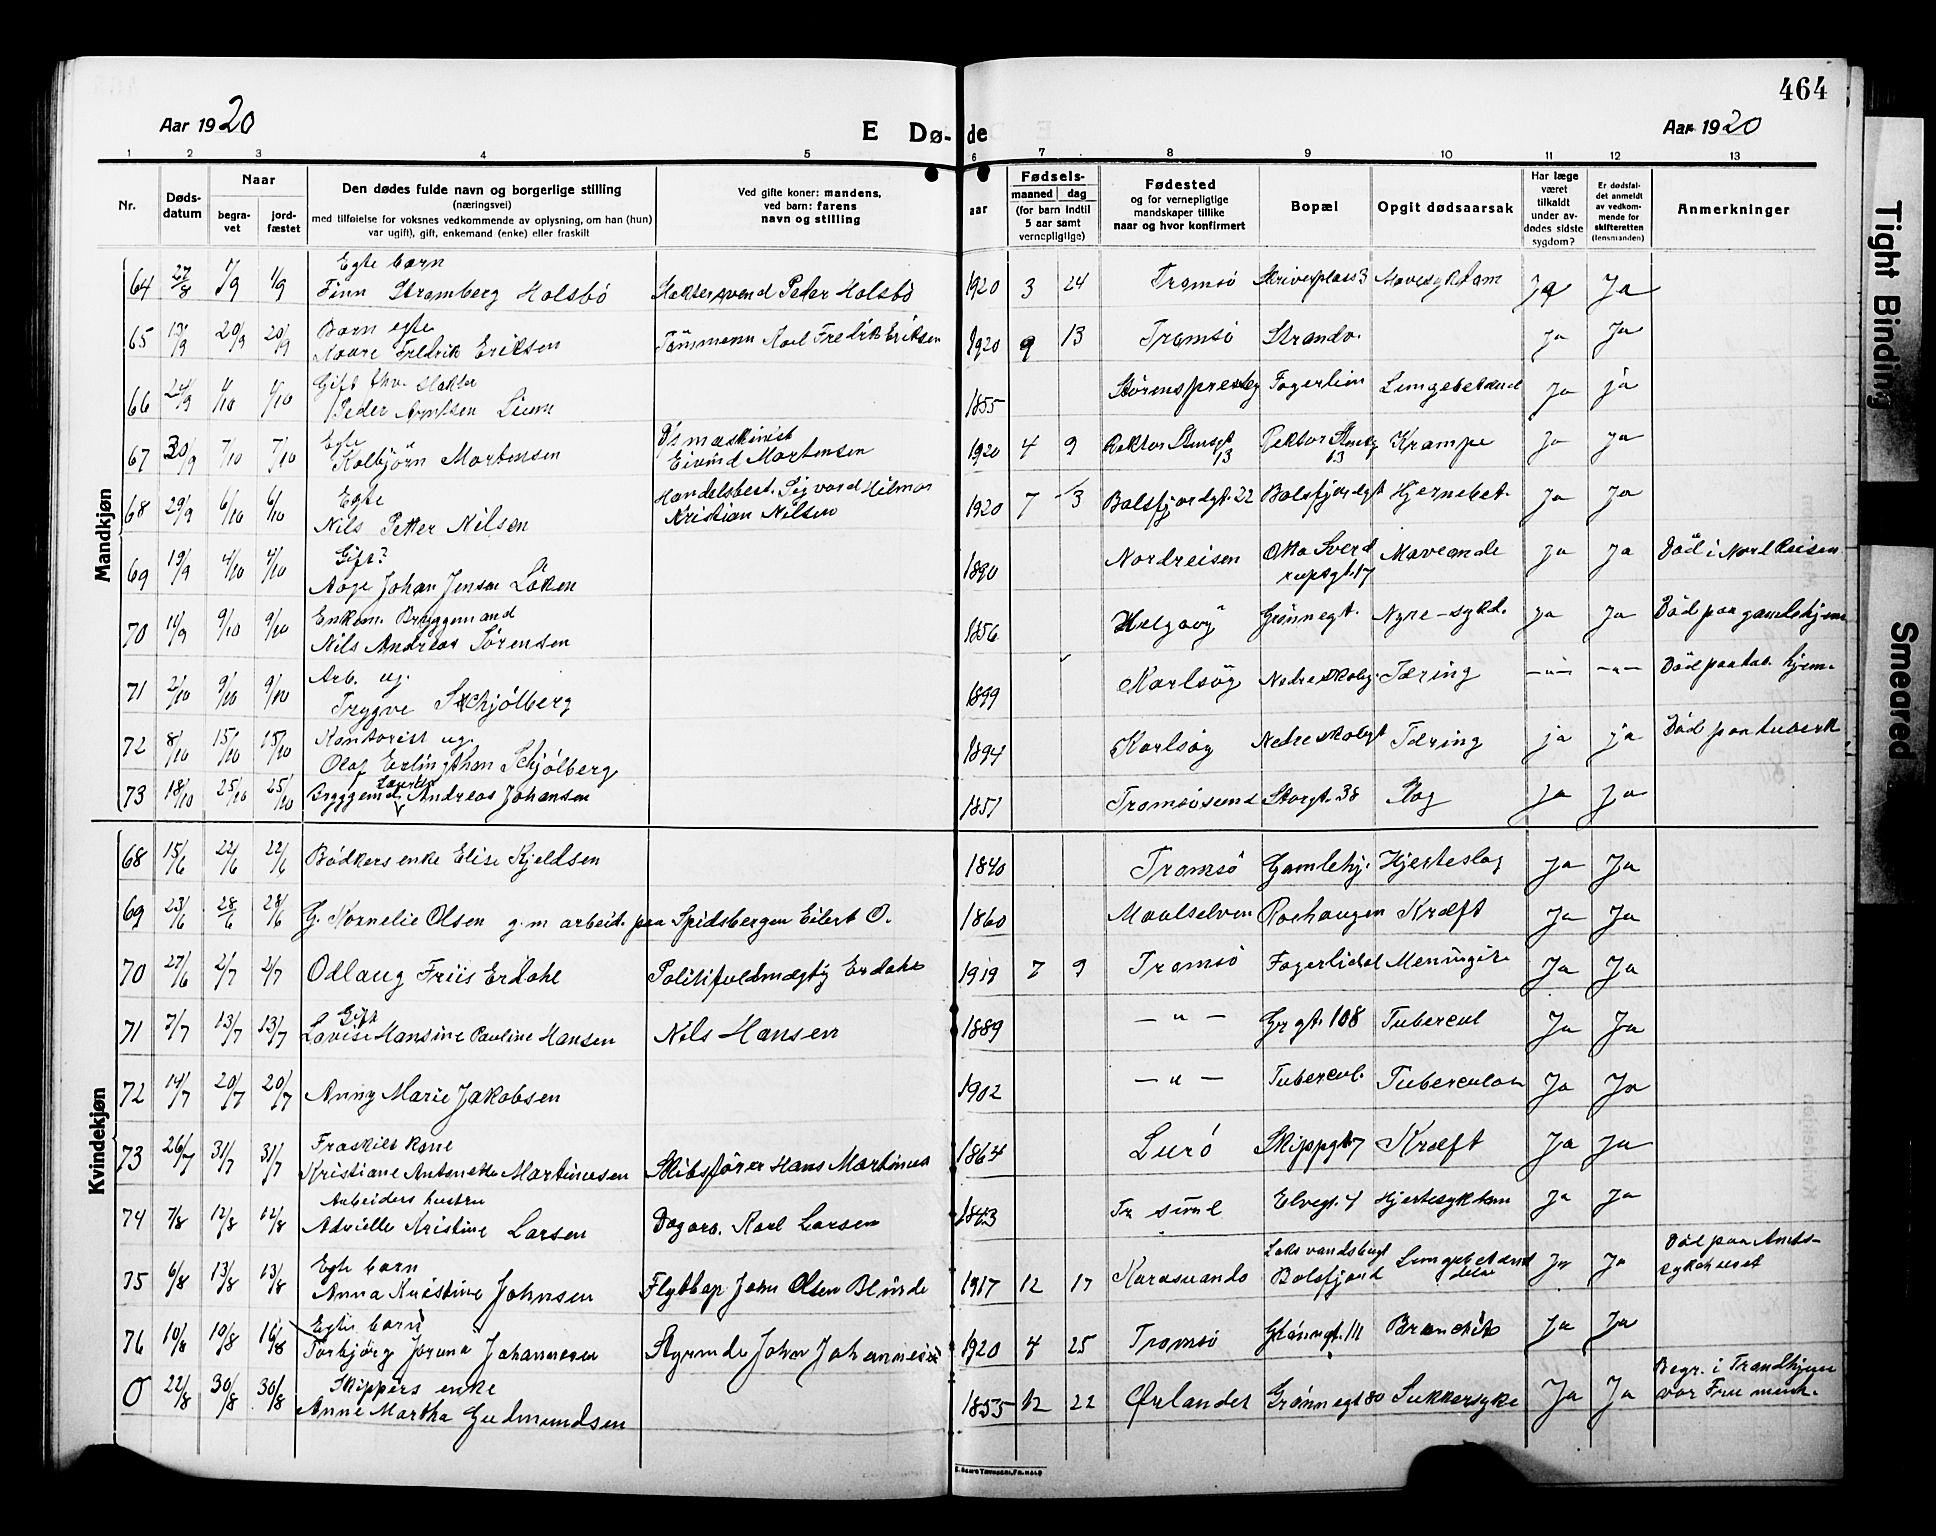 464
Aar 1920
E Dø- de
Aar 1920
1 2 3 4 5 6 7 8 9 10 11 12 13
Nr.
Døds-
datum
Naar
begra-
vet
jord-
fæstet
Den dødes fulde navn og borgerlige stilling
(næringsvei)
med tilføielse for voksnes vedkommende av oplysning, om han (hun)
var ugift), gift, enkemand (enke) eller fraskilt
Ved gifte koner: mandens,
ved barn: farens
navn og stilling
Fødsels-
aar
maaned dag
(for barn indtil
5 aar samt
vernepligtige)
Fødested
og for vernepligtige
mandskaper tillike
naar og hvor konfirmert
Bopæl
Opgit dødsaarsak
Har læge
været
tilkaldt
under av-
dødes sidste
sygdom?
Er dødsfal-
det anmeldt
av vedkom-
mende for
skifteretten
(lensmanden)
Anmerkninger
Mandkjøn
Egte barn
64 27/8 1/9 1/9 Finn Stramberg Holsbö Slaktersvend Peder Holsbö 1920 3 24 Tromsö Skriverplass 3 Mavesykdom Ja Ja
Barn egte
65 20/9 20/9 Kaare Fredrik Eriksen Tömmerm Karl Fredrik Eriksen 1920 9 13 Tromsö Strandv. Ja Ja
Gift fhv. Slakter
66 24/9 1/10 1/10 Peder Arntsen Lium 1855 Störens presteg Fagerlien Lungebetænd Ja ja
Egte D/s maskinist
67 30/9 7/10 7/10 Kolbjörn Mortensen Eivind Mortensen 1920 4 9 Rektor Steensgt 13 Rektor Steensg 13 Krampe Ja ja
Egte Handelsbest. Sigvard Hilmar
68 29/9 6/10 6/10 Nils Petter Nilsen Kristian Nilsen 1920 7 3 Balsfjordgt. 22 Balsfjordgt Hjernebet. Ja Ja
Gift?
69 19/9 4/10 4/10 Aage Johan Jensen Löken 1890 Nordreisen Otto Sverd rupsgt. 17 Maveonde Ja Ja Död i Nord Reisen
Enkem. Bryggemand
70 11/9 9/10 9/10 Nils Andreas Sörensen 1856 Helgöy Grönnegt. Nyre-sykd. Ja Ja Död paa gamlehjem
Arb. ug.
71 2/10 9/10 9/10 Trygve Schjölberg 1899 Karlsöy Nedre skolegt. Tæring -"- -"- Död paa tub. hjem.
Kontorist ug.
72 8/10 15/10 15/10 Olaf Erling Schjölberg 1894 Karlsöy Nedre skolegt Tæring ja ja Död paa tuberk
73 18/10 25/10 25/10 Bryggemd Andreas Johansen 1851 Tromsösund Storgt. 38 Slag ja ja
Kvindekjøn
68 15/6 22/6 22/6 Bödkers enke Elise Kjeldsen 1840 Tromsö Gamlehj. Hjerteslag Ja Ja
69 23/6 28/6 28/6 G. Kornelie Olsen g.m arbeid. paa Spidsbergen Eilert O. 1860 Maalselven Roshaugen Kræft Ja Ja
70 27/6 2/7 2/7 Odlaug Friis Erdahl Politifuldmægtig Erdahl 1919 7 9 Tromsö Fagerlidal Meningite Ja Ja
Gift
71 7/7 13/7 13/7 Lovise Hansine Pauline Hansen Nils Hansen 1889 -"- Grgt. 108 Tubercul Ja Ja
72 14/7 20/7 20/7 Anny Marie Jakobsen 1902 -"- Tubercul. Tuberculon Ja Ja
Fraskilt kone
73 26/7 31/7 31/7 Kristiane Antonette Martinusen Skibsförer Hans Martinus 1864 Lurö Skippgt 7 Kræft Ja Ja
Arbeiders hustru
74 7/8 12/8 12/8 Kristine Larsen Dagarb. Karl Larsen 1843 Tr sund Elvegt. 4 Hjertesykdom Ja Ja
Egte barn
75 6/8 13/8 13/8 Anna Kristine Johnsen Flyttlap John Olsen Blinde 1917 12 17 Karasuando Balsfjord Lungebetænd delse Ja Ja Död paa Amts- sykehuset
Egte barn
76 10/8 19/8 16/8 Torbjörg Jorunn Johannesen Styrmd. John Johannesen 1920 4 25 Tromsö Grönnegt. 111 Bronchit Ja Ja
Skippers enke
0 22/8 30/8 30/8 Anne Martha Gudmundsen 1855 12 22 Ørlandet Grönnegt 80 Sukkersyke Ja Ja Begr. i Trondhjem
Tight Binding
Smeared